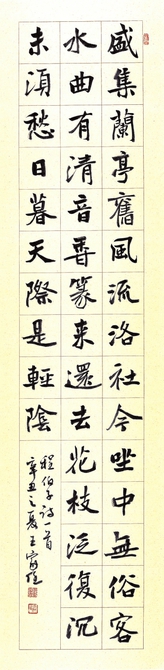 盛集蘭亭舊風流洛社今坐中無俗客
水曲有清音香篆来還去花枝泛復沉
未須愁日暮天際是輕陰
程伯子诗一首
辛丑之夏王家